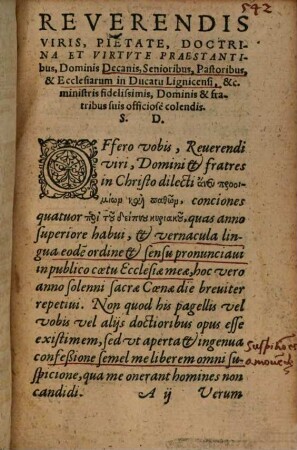 542
REVERENDIS
VIRIS, PIETATE, DOCTRI-
NA ET VIRTVTE PRAESTANTI
bus, Dominis Decanis, Senioribus, Pastoribus,
& Ecclesiarum in Ducatu Lignicensi, &c.
ministris fidelissimis, Dominis & fra-
tribus suis officiosè colendis.
S. D.
OFfero vobis, Reverendi
viri, Domini & fratres
in Christo dilecti ἄνευ προοι-
μίωμ καὶ παθῶμ, conciones
quatuor περὶ τοῦ δείπνου κυριακοῦ, quas anno
superiore habui, & vernacula lin-
gua eodē ordine & sensu pronunciavi
in publico cœtu Ecclesiæ meæ, hoc vero
anno solenni sacræ Cœnæ die breviter
repetivi. Non quod his pagellis vel
vobis vel alijs doctioribus opus esse
existimem, sed vt aperta & ingenua
confeßione semel me liberem omni su-
spicione, qua me onerant homines non
candidi. A ij Verum